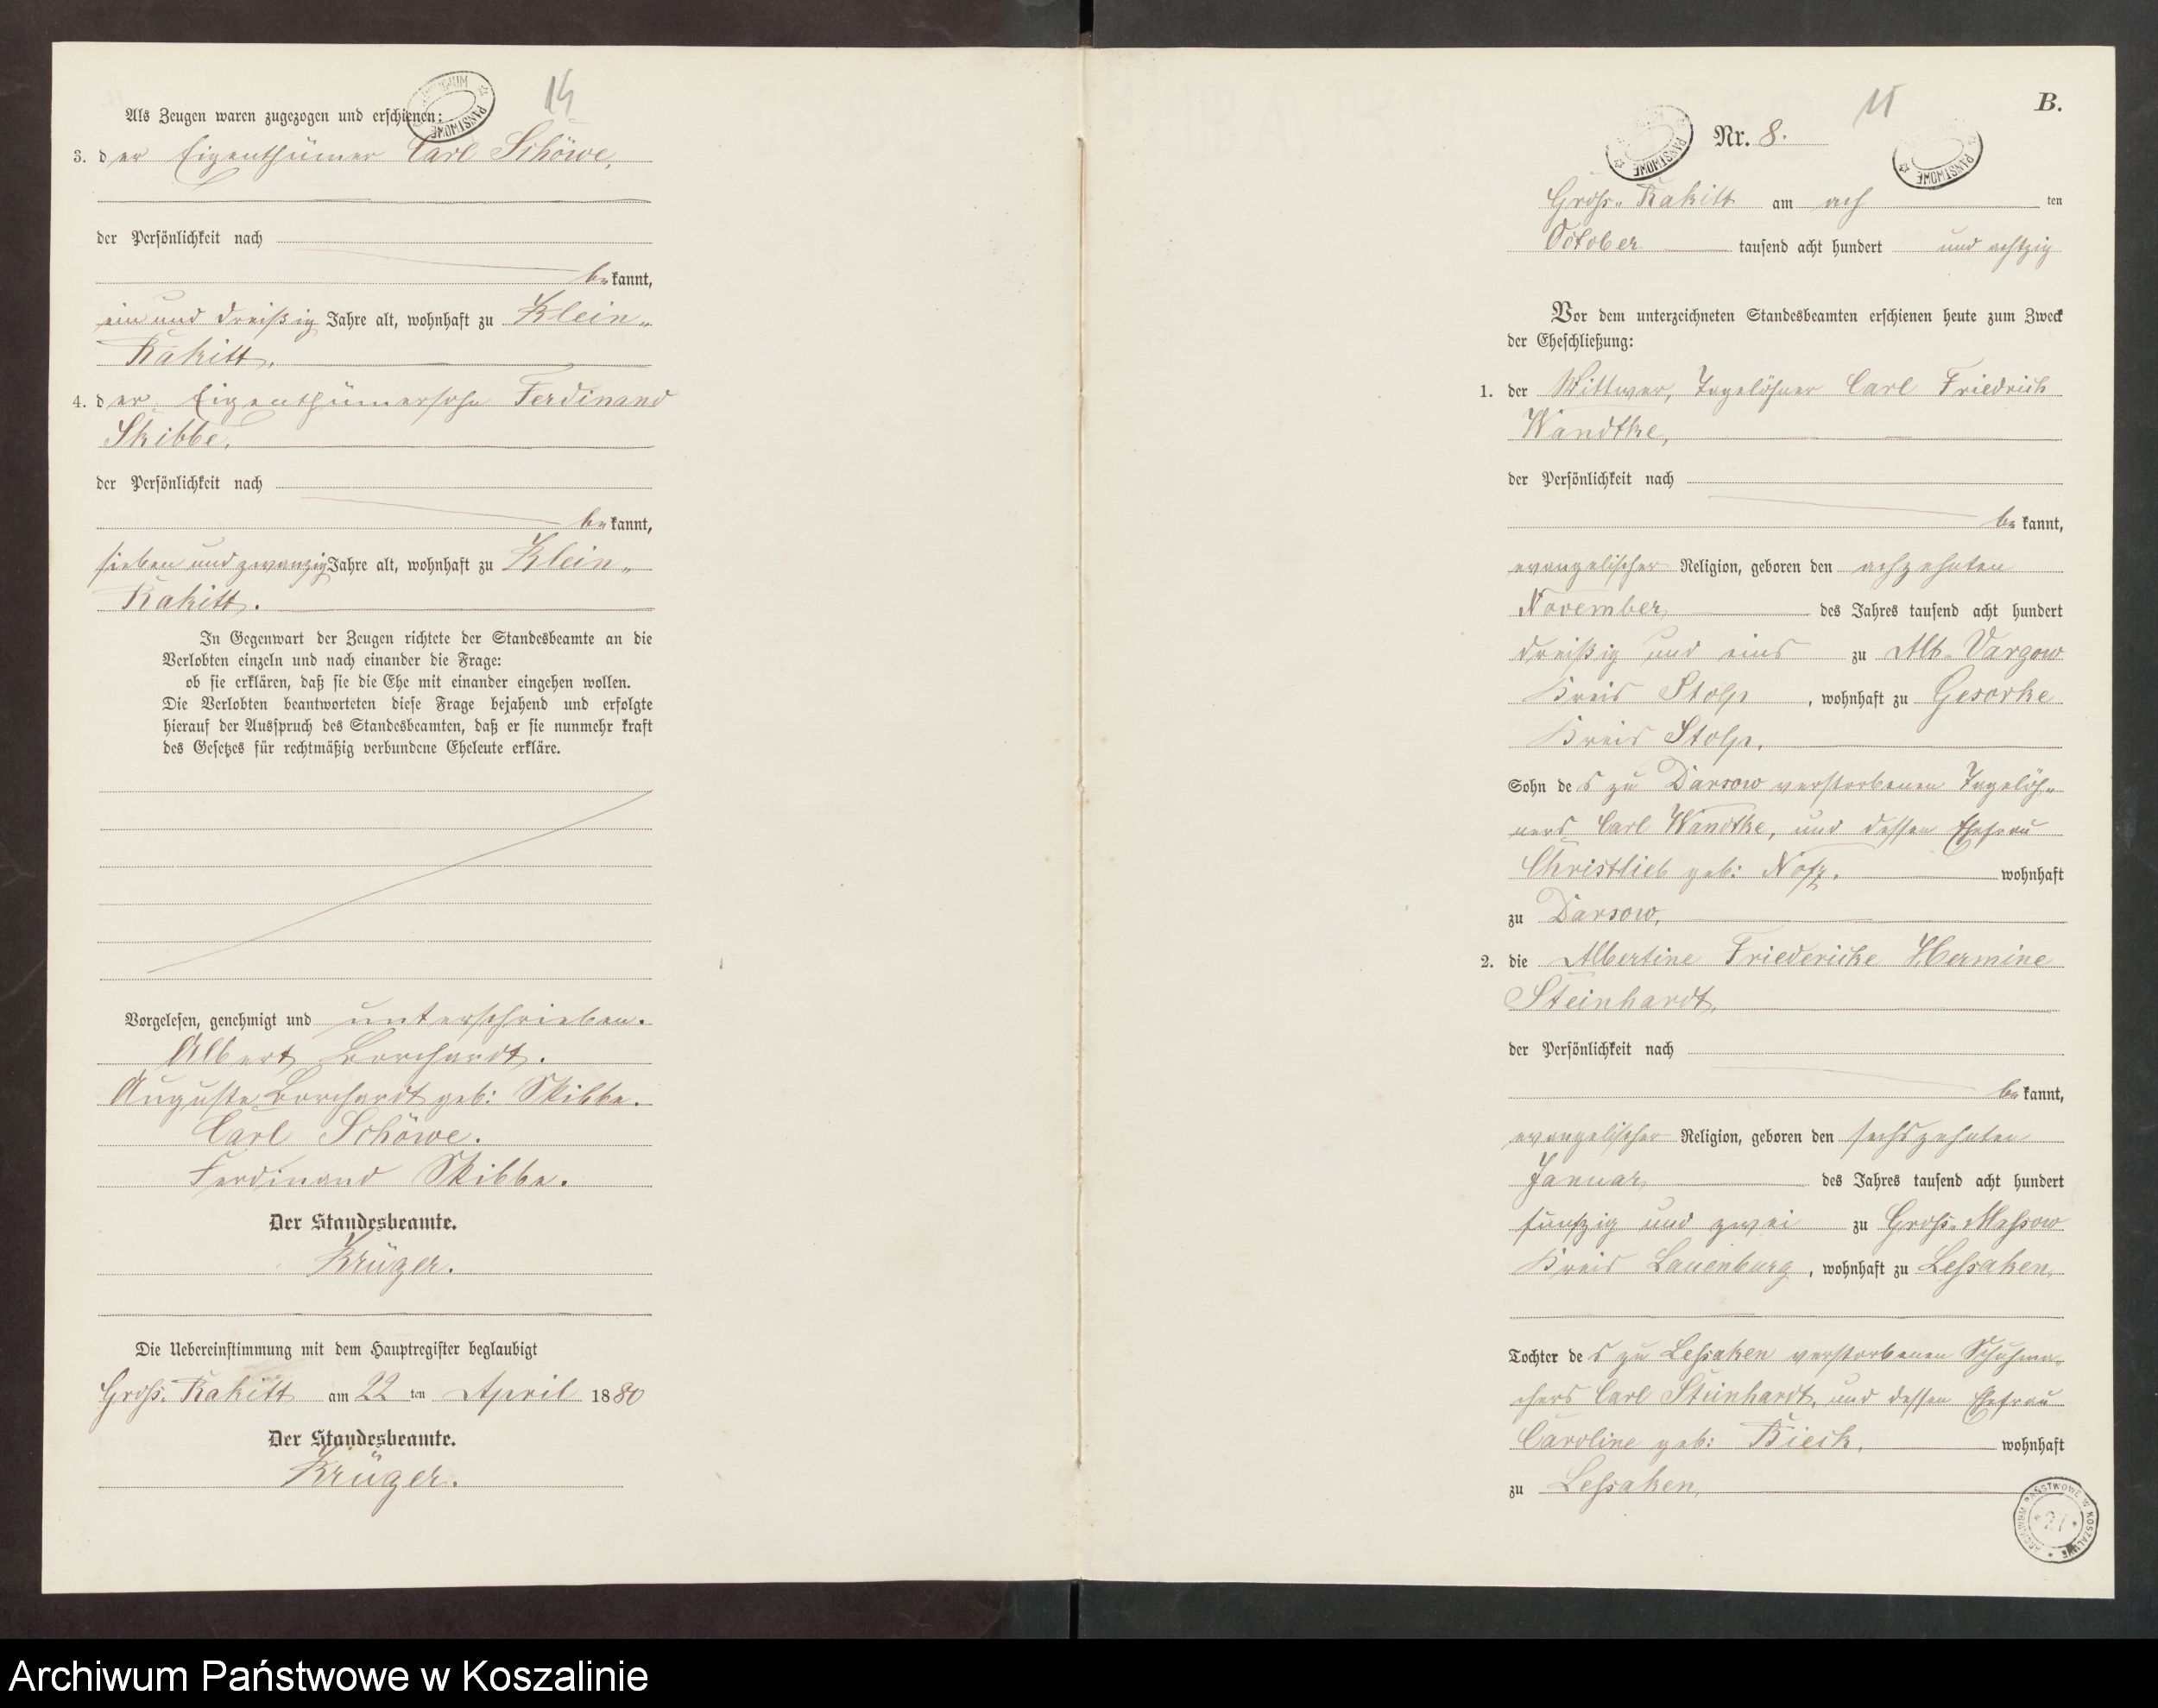 14
Als Zeugen waren zugezogen und erschienen:
3. der Eigenthümer Carl Schöwe,
der Persönlichkeit nach
bekannt,
ein und dreißig Jahre alt, wohnhaft zu Klein-
Rakitt.
4. der Eigenthümersohn Ferdinand
Skibbe,
der Persönlichkeit nach
bekannt,
sieben und zwanzig Jahre alt, wohnhaft zu Klein-
Rakitt.
In Gegenwart der Zeugen richtete der Standesbeamte an die
Verlobten einzeln und nach einander die Frage:
ob sie erklären, daß sie die Ehe mit einander eingehen wollen.
Die Verlobten beantworteten diese Frage bejahend und erfolgte
hierauf der Ausspruch des Standesbeamten, daß er sie nunmehr kraft
des Gesetzes für rechtmäßig verbundene Eheleute erkläre.
Vorgelesen, genehmigt und unterschrieben.
Albert Borchardt.
Auguste Borchardt geb: Skibbe.
Carl Schöwe.
Ferdinand Skibbe.
Der Standesbeamte.
Krüger.
Die Uebereinstimmung mit dem Hauptregister beglaubigt
Groß-Rakitt am 22 ten April 1880
Der Standesbeamte.
Krüger.
15
B.
Nr. 8.
Groß-Rakitt am ach ten
October tausend acht hundert und achtzig
Vor dem unterzeichneten Standesbeamten erschienen heute zum Zweck
der Eheschließung:
1. der Wittwer, Tagelöhner Carl Friedrich
Wandtke,
der Persönlichkeit nach
bekannt,
evangelischer Religion, geboren den achzehnten
November des Jahres tausend acht hundert
dreißig und eins zu Alt-Vargow
Kreis Stolp, wohnhaft zu Gesorke
Kreis Stolp,
Sohn des zu Darsow verstorbenen Tagelöh-
ners Carl Wandtke, und dessen Ehefrau
Christlieb geb: wohnhaft
zu Darsow,
2. die Albertine Friedericke Hermine
Steinhardt,
der Persönlichkeit nach
bekannt,
evangelischer Religion, geboren den sechszehnten
Januar des Jahres tausend acht hundert
funfzig und zwei zu Groß-Massow
Kreis Lauenburg, wohnhaft zu Lessaken,
Tochter des zu Lessaken verstorbenen Schuhma-
chers Carl Steinhardt, und dessen Ehefrau
Caroline geb: Bieck, wohnhaft
zu Lessaken,
ARCHIWUM PAŃSTWOWE W KOSZALINIE
27
Archiwum Państwowe w Koszalinie